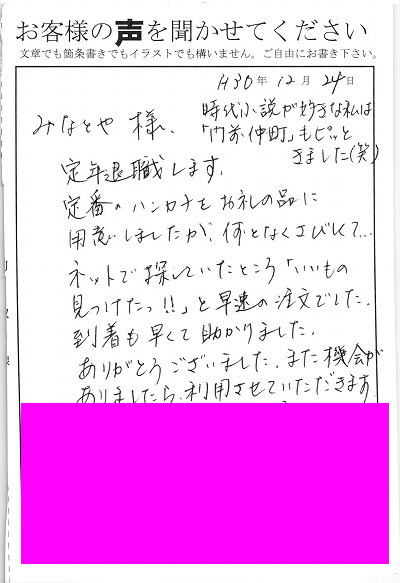 お客様の声を聞かせてください
文章でも箇条書きでもイラストでも構いません。ご自由にお書き下さい。
H30年 12月 24日
みなとや 様、
時代小説が好きな私は
「門前仲町」もピッと
きました(笑)
定年退職します。
定番のハンカチをお礼の品に
用意しましたが、何となくさびしくて…
ネットで探していたところ「いいもの
見つけたっ!!」と早速の注文でした。
到着も早くて助かりました。
ありがとうございました。また機会が
ありましたら、利用させていただきます